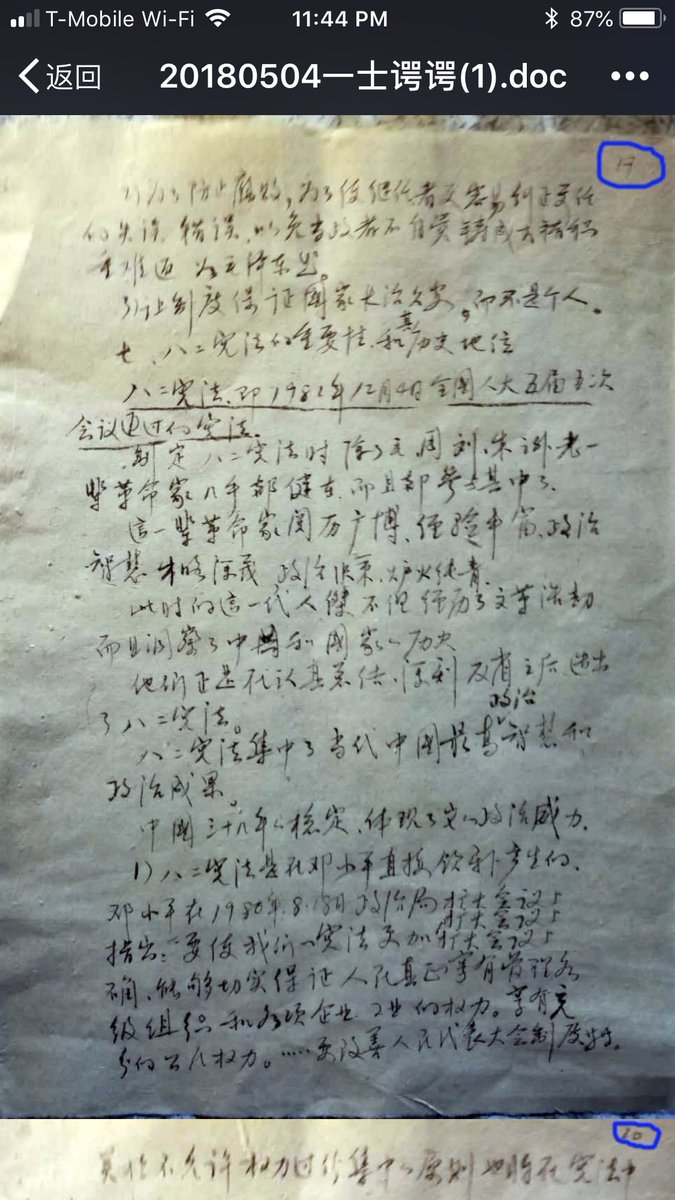 T-Mobile Wi-Fi 11:44 PM 87%
返回 20180504一士谔谔(1).doc
19
2)为了防止腐败,为了使继任者更容易纠正前任
的失误、错误,以免当政者不自觉铸成大错积
重难返
3)让制度保证国家长治久安,而不是个人。
七、八二宪法的重要性和其历史地位
八二宪法,即1982年12月4日全国人大五届五次
会议通过的宪法。
制定八二宪法时除了毛、周、刘、朱 老一
辈革命家几乎都健在,而且都参与其中了。
這一辈革命家阅历广博、经验丰富、政治
智慧 炉火纯青。
此时的這一代人傑不但经历了文革浩劫
而且洞察了中国和国家的历史
他们正是在认真总结、深刻反省之后,
了八二宪法。
八二宪法集中了当代中国最高政治智慧和
政治成果。
中国三十几年的稳定,体现了它的政治威力。
1)八二宪法是在邓小平直接 产生的,
邓小平在1980年8.18日政治局扩大会议上
扩大会议上
指出:"要使我们的宪法更加扩大会议上
确,能够切实保证人民真正享有管理各
级组织和各项企业 业的权力。享有充
分的公民权力。……要改善人民代表大会制度等等。
20
不允许权力过分集中的原则也将在宪法中